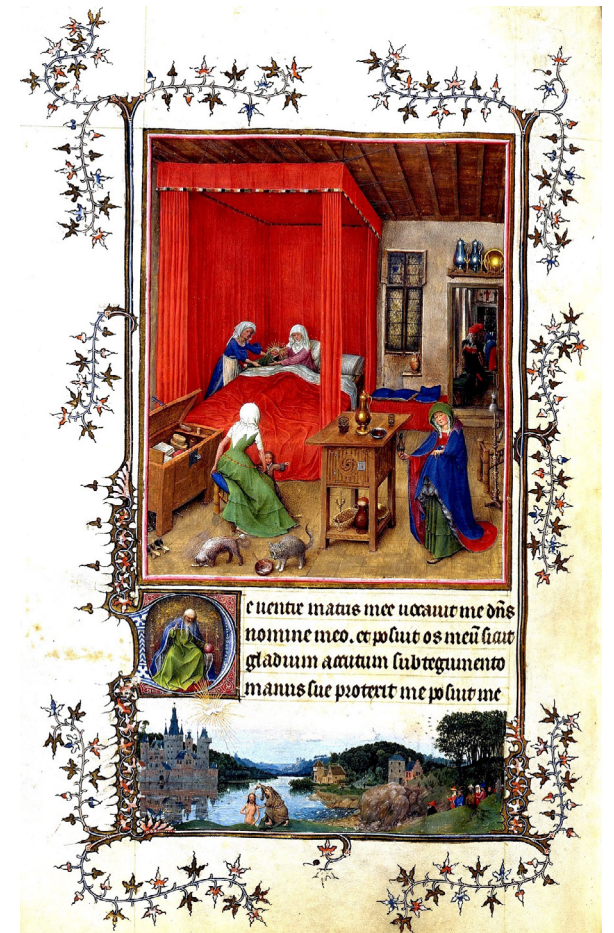 e ventre matris mee vocavit me dn̄s
nomine meo. et posuit os meū sicut
gladium accutum sub tegumento
manus sue proterit me posuit me